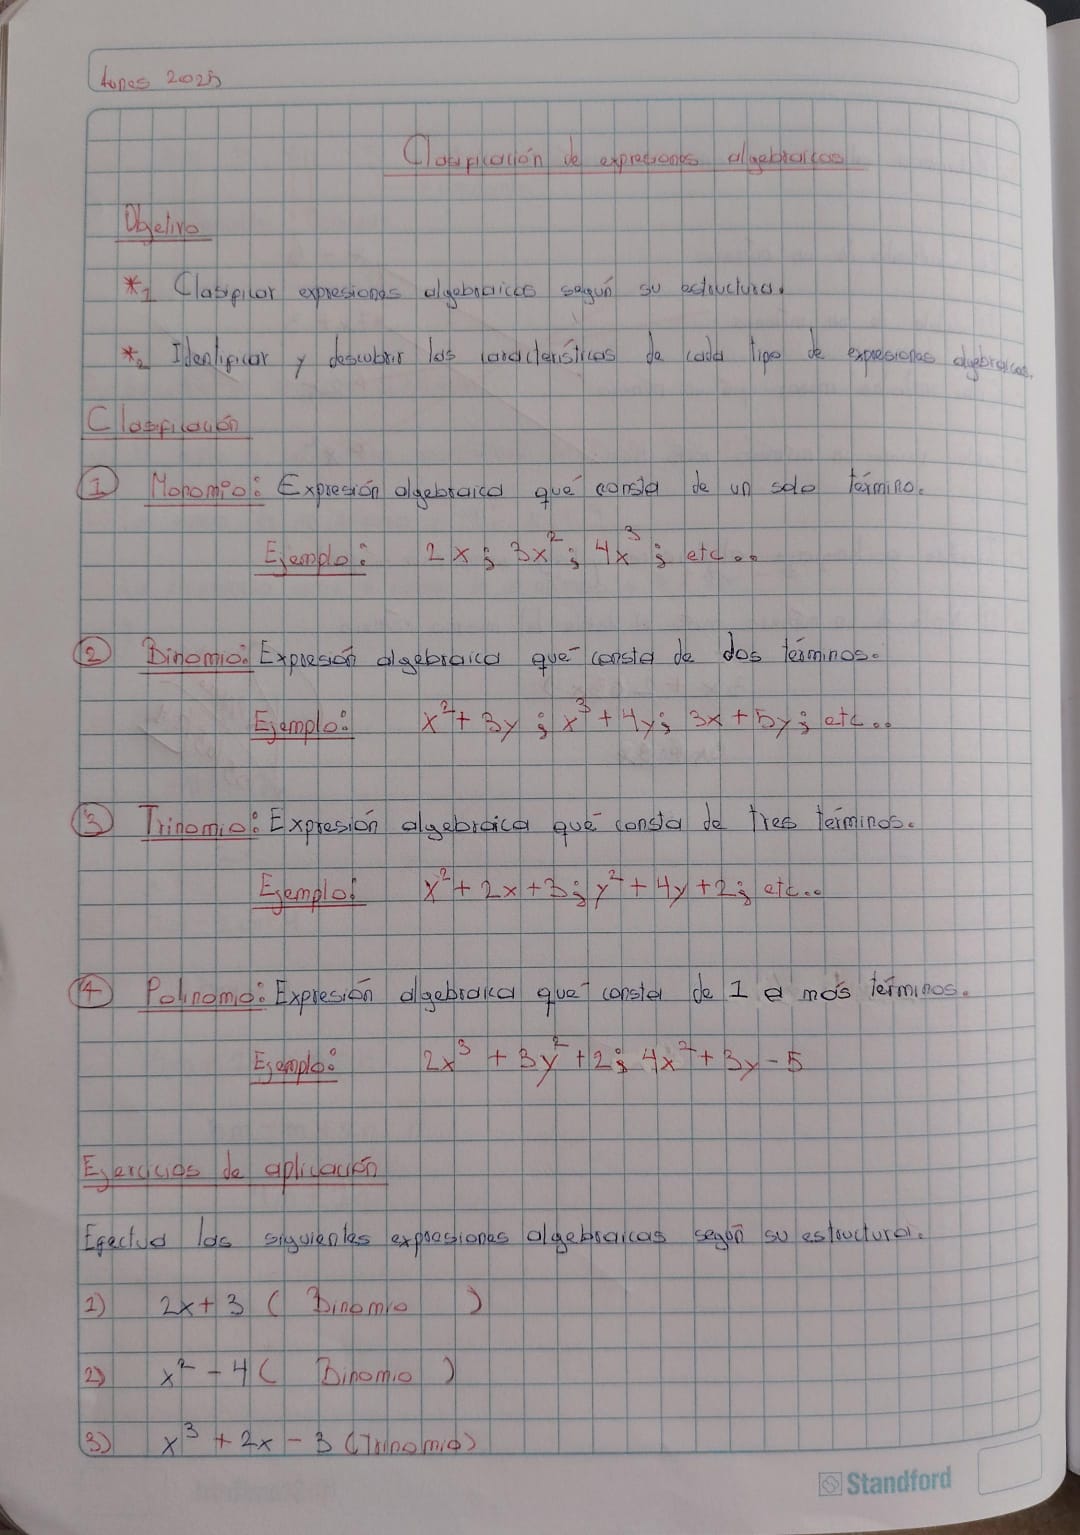 Lunes 2025
Clasificación de expresiones algebraicas
Objetivo
*1 Clasificar expresiones algebraicas según su estructura.
*2 Identificar y descubrir las características de cada tipo de expresiones algebraicas.
Clasificación
① Monomio: Expresión algebraica qué consta de un solo término.
Ejemplo: 2x; 3x²; 4x³; etc..
② Binomio: Expresión algebraica qué consta de dos términos.
Ejemplo: x²+ 3y; x³ + 4y; 3x + 5y; etc..
③ Trinomio: Expresión algebraica qué consta de tres términos.
Ejemplo: x²+ 2x +3; y²+ 4y +2; etc..
④ Polinomio: Expresión algebraica qué consta de 1 a más términos.
Ejemplo: 2x³ + 3y² +2; 4x²+ 3y - 5
Ejercicios de aplicación
las siguientes expresiones algebraicas según su estructura.
1) 2x + 3 ( Binomio )
2) x² - 4 ( Binomio )
3) x³ + 2x - 3 (Trinomio)
Standford